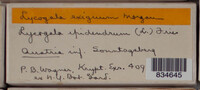 Lycogala exiguum Morgan
Lycogala epidendrum (L.) Fries
Austria inf. Sonntagberg
P. B. Wagner, Krypt. Exs. 409
ex N.Y. Bot. Gard.
834645